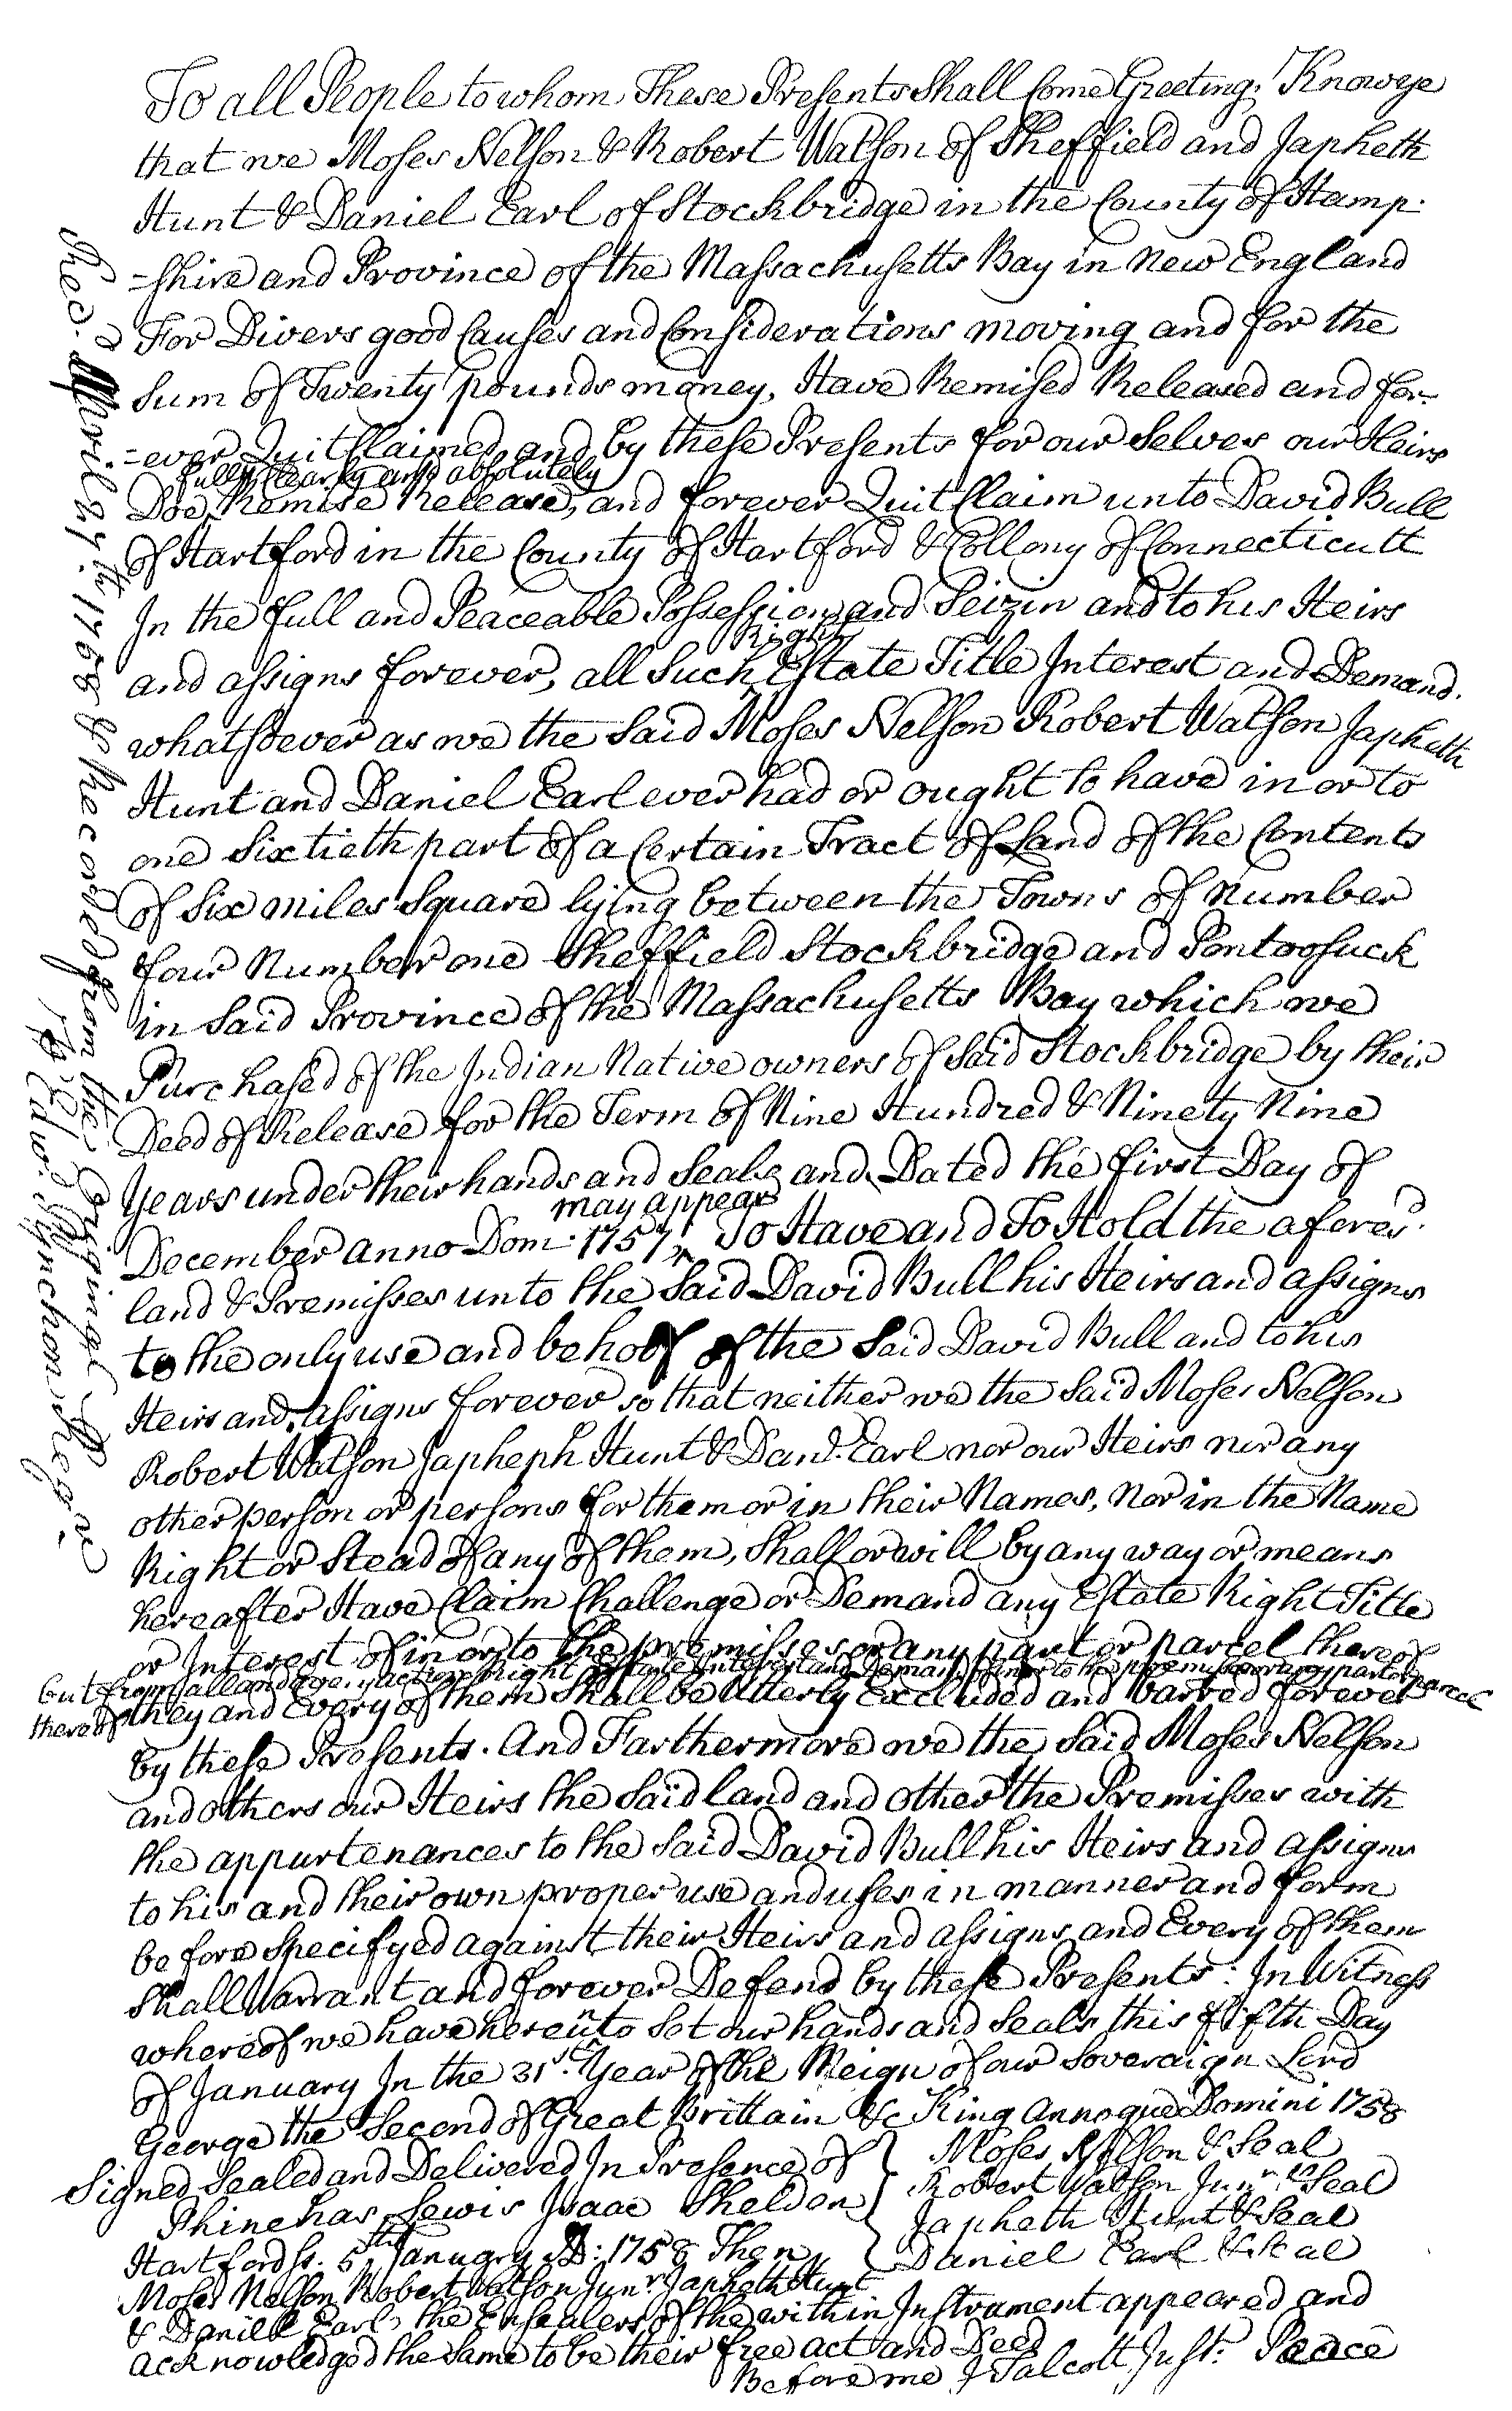 To all People to whom These Presents Shall Come Greeting; Know ye
that we Moses Nelson & Robert Watson of Sheffield and Japheth
Hunt & Daniel Earl of Stockbridge in the County of Hamp-
=shire and Province of the Massachusetts Bay in New England
For Divers good Causes and Considerations moving and for the
Sum of Twenty pounds money, Have Remised Released and for-
=ever Quit Claimed, and by these Presents for our Selves our Heirs
fully clearly and absolutely
Doe Remise Release, and forever Quit Claim unto David Bull
of Hartford in the County of Hartford & Collony of Connecticutt
In the full and Peaceable Possession and Seizin and to his Heirs
Right
and assigns forever, all Such Estate Title Interest and Demand.
whatsoever as we the Said Moses Nelson Robert Watson Japheth
Hunt and Daniel Earl ever had or ought to have in or to
one Sixtieth part of a Certain Tract of Land of the Contents
of Six miles Square lying between the Towns of Number
four Number one Sheffield Stockbridge and Pontoosuck
in Said Province of the Massachusetts Bay which we
Purchased of the Indian Native owners of Said Stockbridge by their
Deed of Release for the Term of Nine Hundred & Ninety Nine
Years under their hands and Seals and Dated the first Day of
may appear
December anno Dom: 1757 To Have and To Hold the aferesd.
land & Premisses unto the Said David Bull his Heirs and assigns
to the only use and behoof of the Said David Bull and to his
Heirs and assigns forever so that neither we the Said Moses Nelson
Robert Watson Japheph Hunt & Danl. Earl nor our Heirs nor any
other person or persons for them or in their Names, Nor in the Name
Right or Stead of any of them, Shall or will by any way or means
hereafter Have Claim Challenge or Demand any Estate Right Title
or Interest of in or to the premisses or any part or parcel thereof
but from all and Every action Right Estate Title Interest and Demand of in or to the premisses or any part or parcel
thereof they and Every of them Shall be Utterly Excluded and barred forever
by these Presents. And Farthermore we the Said Moses Nelson
and others our Heirs the Said land and other the Premisses with
the appurtenances to the Said David Bull his Heirs and assigns
to his and their own proper use and uses in manner and form
before Specifyed against their Heirs and assigns and Every of them
Shall Warrant and forever Defend by these Presents: In Witness
whereof we have hereunto Set our hands and Seals this fifth Day
of January In the 31st. Year of the Reign of our Soveraign Lord
George the Second of Great Brittain &c King Annoque Domini 1758
Signed Sealed and Delivered In Presence of } Moses Nelson & Seal
Phinehas Lewis Isaac Sheldon } Robert Watson Junr. & Seal
Japheth Hunt & Seal
Hartford ss. 5th January AD: 1758 Then Daniel Earl & Seal
Moses Nelson Robert Watson Junr. Japheth Hunt
& Daniell Earl, the Ensealers of the within Instrument appeared and
acknowledged the Same to be their free act and Deed
Before me J Talcott Just: Peace
Recd. April 27th. 1768 & Recorded from the Original
Pr. Edwd. Pynchon Regr.